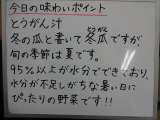 今日の味わいポイント
とうがん汁
冬の瓜と書いて冬瓜ですが
旬の季節は夏です。
95%以上が水分でできており、
水分が不足しがちな暑い日に
ぴったりの野菜です!!